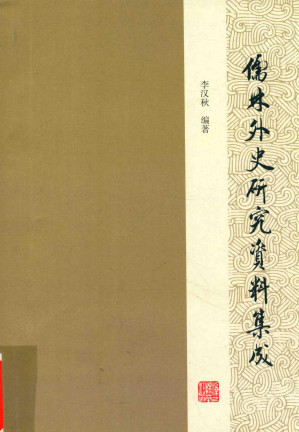 儒林外史研究資料集成
李汉秋 编著